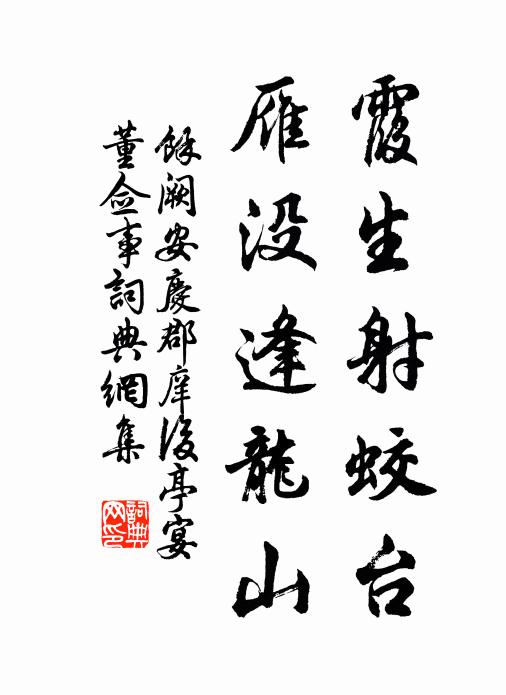 霞生射蛟台
雁没逢龍山
餘阙安慶郡庠後亭宴
董佥事詞典網集
詞典网印